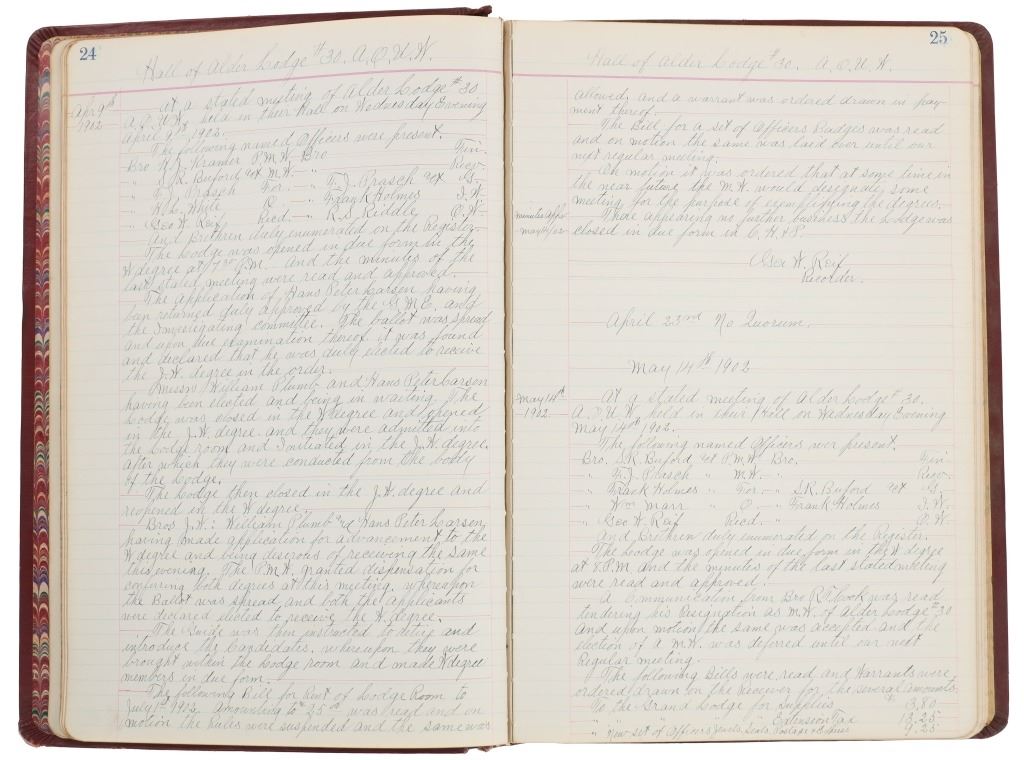 24
Hall of Alder Lodge #30. A.O.U.W.
Apr 9th
1902
At a stated meeting of Alder Lodge #30
A.O.U.W. held in their Hall on Wednesday Evening
April 9th 1902.
The following named Officers were present.
Bro W.J. Kramer P.M.W. Bro Fin.
" S.R. Buford act M.W. " Recv.
" F.J. Prasch For. " F.J. Prasch act G.
" W.L. White O " Frank Holmes I.W.
" Geo W. Reif Recd. " R.S. Riddle O.W.
And Brethren duly enumerated on the Register.
The Lodge was opened in due form in the
W degree at 7 30 P.M. and the minutes of the
last stated meeting were read and approved.
The application of Hans Peter Larsen having
ben returned duly approved by the G.M.E. and
the Investigating committe. The ballot was spread
and upon due examination thereof it was found
and declared that he was duly elected to receive
the J.W. degree in the order.
Messrs William Plumb and Hans Peter Larsen
having been elected and being in waiting. The
Lodge was closed in the W degree and opened
in the J.W. degree. and they were admitted into
the Lodge room and Initiated in the J.W. degree.
After which they were conducted from the body
of the Lodge.
The Lodge then closed in the J.W. degree and
reopened in the W degree.
Bros J.W.: William Plumb and Hans Peter Larsen
having made application for advancement to the
W degree and being desirous of receiving the same
this evening. The P.M.W. granted dispensation for
confering both degrees at this meeting. whereupon
the Ballot was spread, and both the applicants
were declared elected to receive the W. degree.
The Guide was then instructed to retire and
introduce the Candidates. whereupon they were
brought within the Lodge room and made W degree
members in due form.
The following Bill for Rent of Lodge Room to
July 1st 1902. Amounting to 25 was read and on
motion the Rules were suspended and the same was
25
Hall of Alder Lodge #30. A.O.U.W.
allowed. and a warrant was ordered drawn in pay-
ment thereof.
The Bill for a set of Officers Badges was read
and on motion the same was laid over until our
next regular meeting.
On motion it was ordered that at some time in
the near future the M.W. would designate some
meeting for the purpose of exemplifying the degrees.
minutes appr
May 14/02
There appearing no further business the Lodge was
closed in due form in C.H.&P.
Geo W. Reif
Recorder.
April 23rd No Quorum.
May 14th 1902
May 14th
1902.
At a stated meeting of Alder Lodge #30.
A.O.U.W. held in their Hall on Wednesday Evening
May 14th 1902.
The following named Officers wer present.
Bro. S.R. Buford act P.M.W. Bro. Fin.
" F.J. Prasch " M.W. " Recv.
" Frank Holmes " For. " S.R. Buford act G.
" Wm Marr " O. " Frank Holmes I.W.
" Geo W. Reif Recd. " O.W.
And Brethren duly enumerated on the Register.
The Lodge was opened in due form in the W degree
at 8 P.M and the minutes of the last stated meeting
were read and approved.
A Communication from Bro R.T. Cook was read
tendering his Resignation as M.W. of Alder Lodge #30
And upon motion the same was accepted and the
election of a M.W. was deferred until our next
Regular meeting.
The following Bills were read and Warrants were
ordered drawn on the Receiver for the several amounts.
To the Grand Lodge for Supplies 3.80
" " " " " Extension Tax 13.25
" New set of Officers Jewels, Seals, Postage & Express 9.25